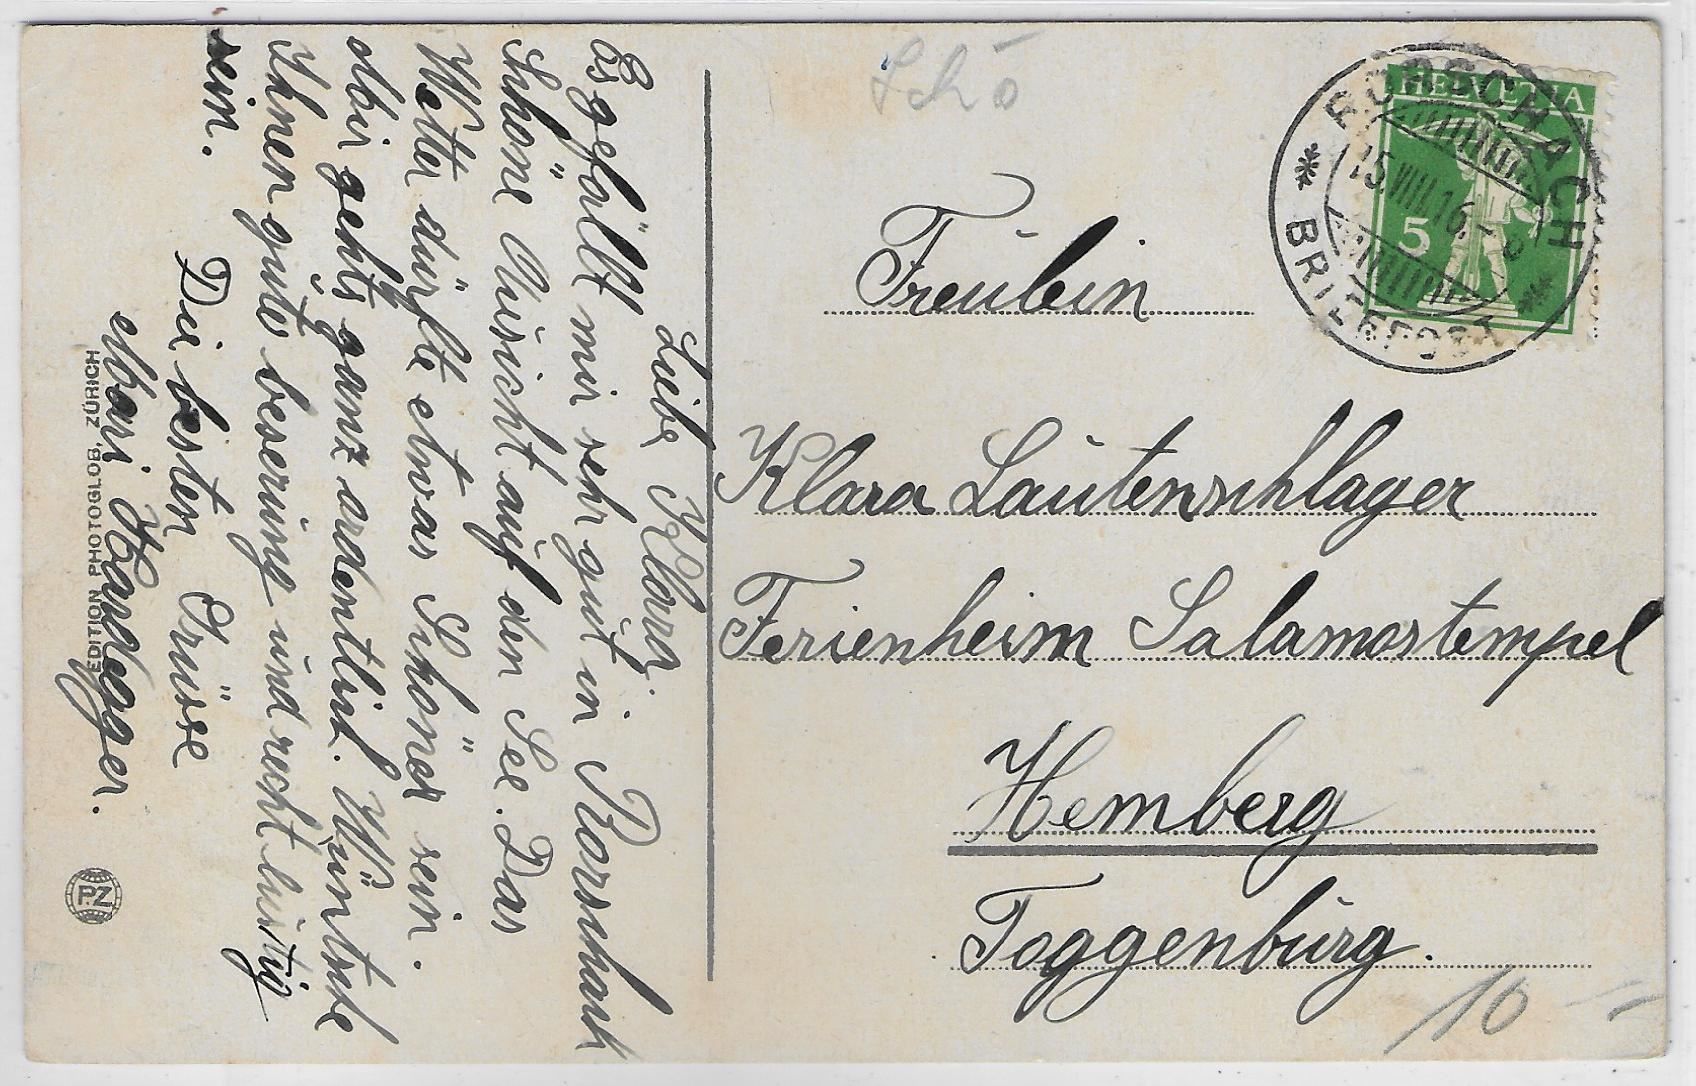 Liebe Klara.
Es gefällt mir sehr gut in Rorschach
schöne Aussicht auf den See. Das
Wetter dürfte etwas Schöner sein.
gehts ganz ordentlich. Wüntsche
Ihnen gute beserung und recht lustig
sein.
Die besten Grüsse
EDITION PHOTOGLOB, ZÜRICH
P.Z
Schö
HELVETIA
5
RORSCHACH
15.VIII.16.
BRIEFPOST
Freulein
Klara Lautenschlager
Ferienheim Salamostempel
Hemberg
Toggenburg.
10